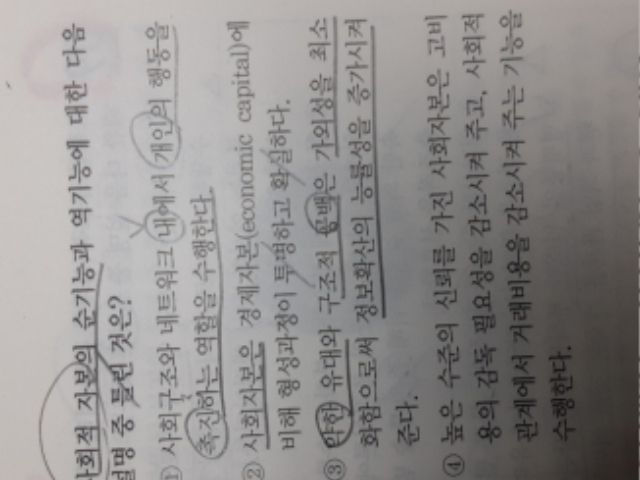 사회적 자본의 순기능과 역기능에 대한 다음
설명 중 틀린 것은?
① 사회구조와 네트워크 내에서 개인의 행동을
촉진하는 역할을 수행한다.
② 사회자본은 경제자본(economic capital)에
비해 형성과정이 투명하고 확실하다.
③ 약한 유대와 구조적 공백은 가외성을 최소
화함으로써 정보확산의 능률성을 증가시켜
준다.
④ 높은 수준의 신뢰를 가진 사회자본은 고비
용의 감독 필요성을 감소시켜 주고, 사회적
관계에서 거래비용을 감소시켜 주는 기능을
수행한다.